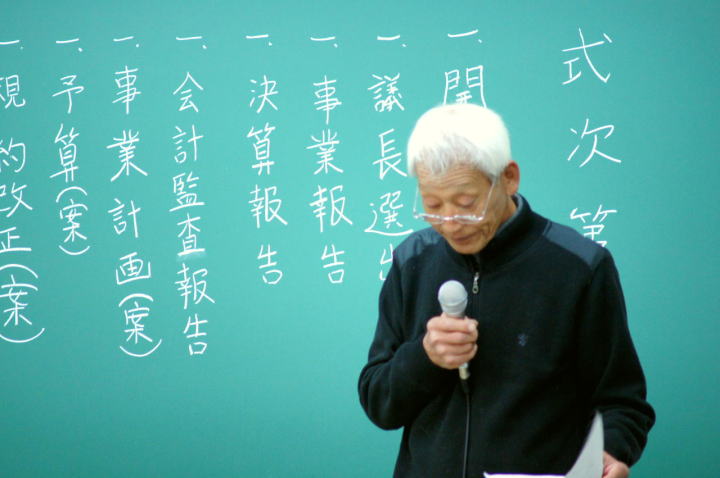 式次第
一、開
一、議長選出
一、事業報告
一、決算報告
一、会計監査報告
一、事業計画(案)
一、予算(案)
一、規約改正(案)